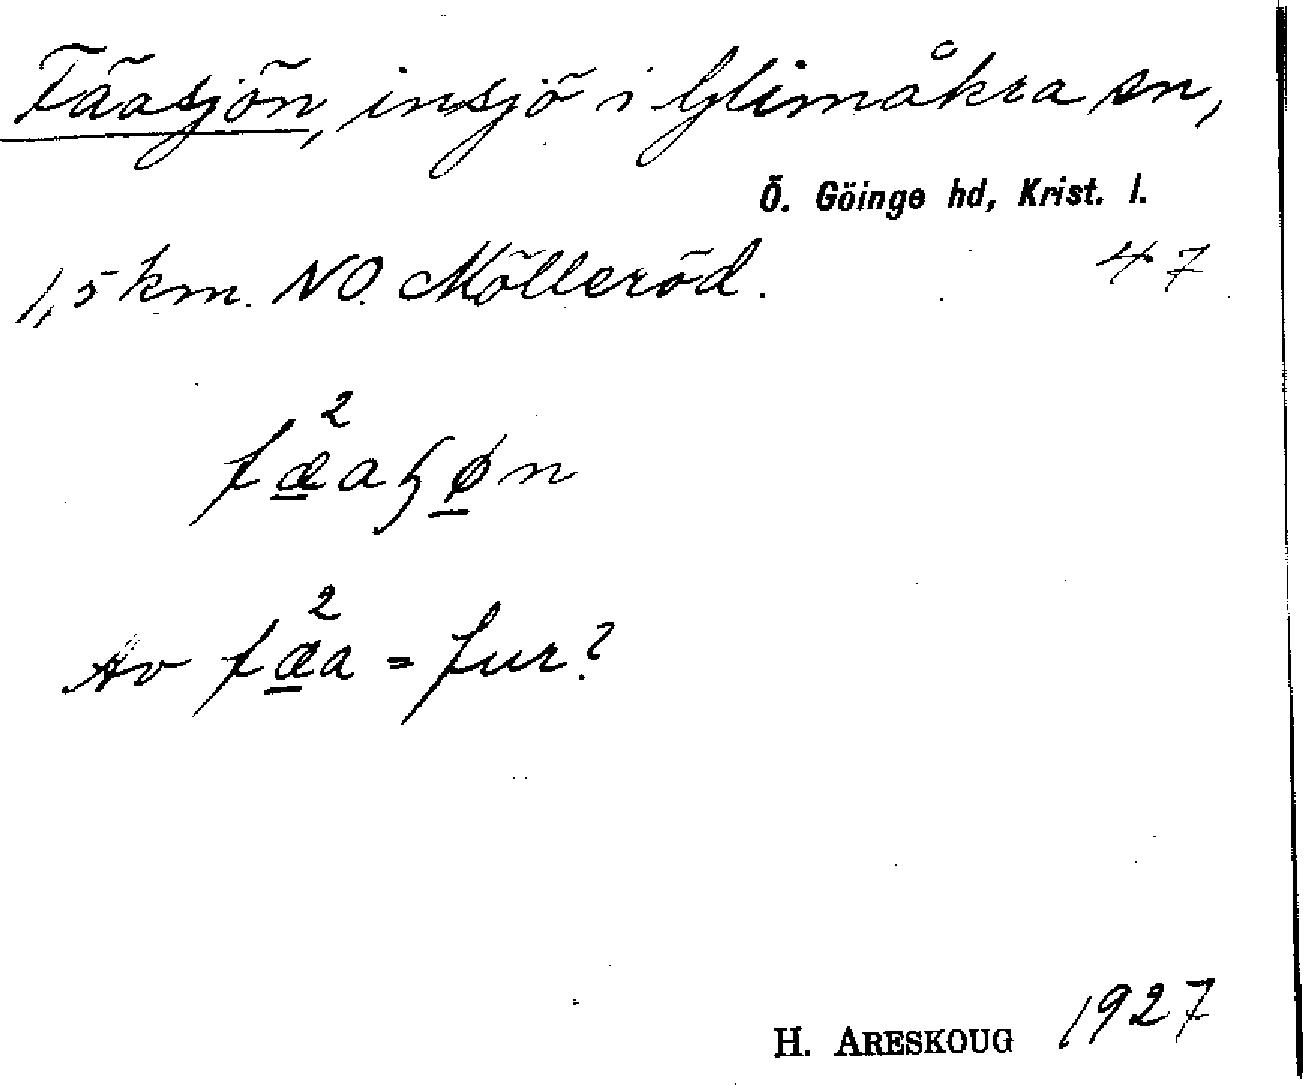 Fääsjön, insjö i Glimåkra sn,
Ö. Göinge hd, Krist. l.
1,5 km. NO. Mölleröd. 47
2
fæaɧøn
2
Av fæa = fur?
H. ARESKOUG 1927